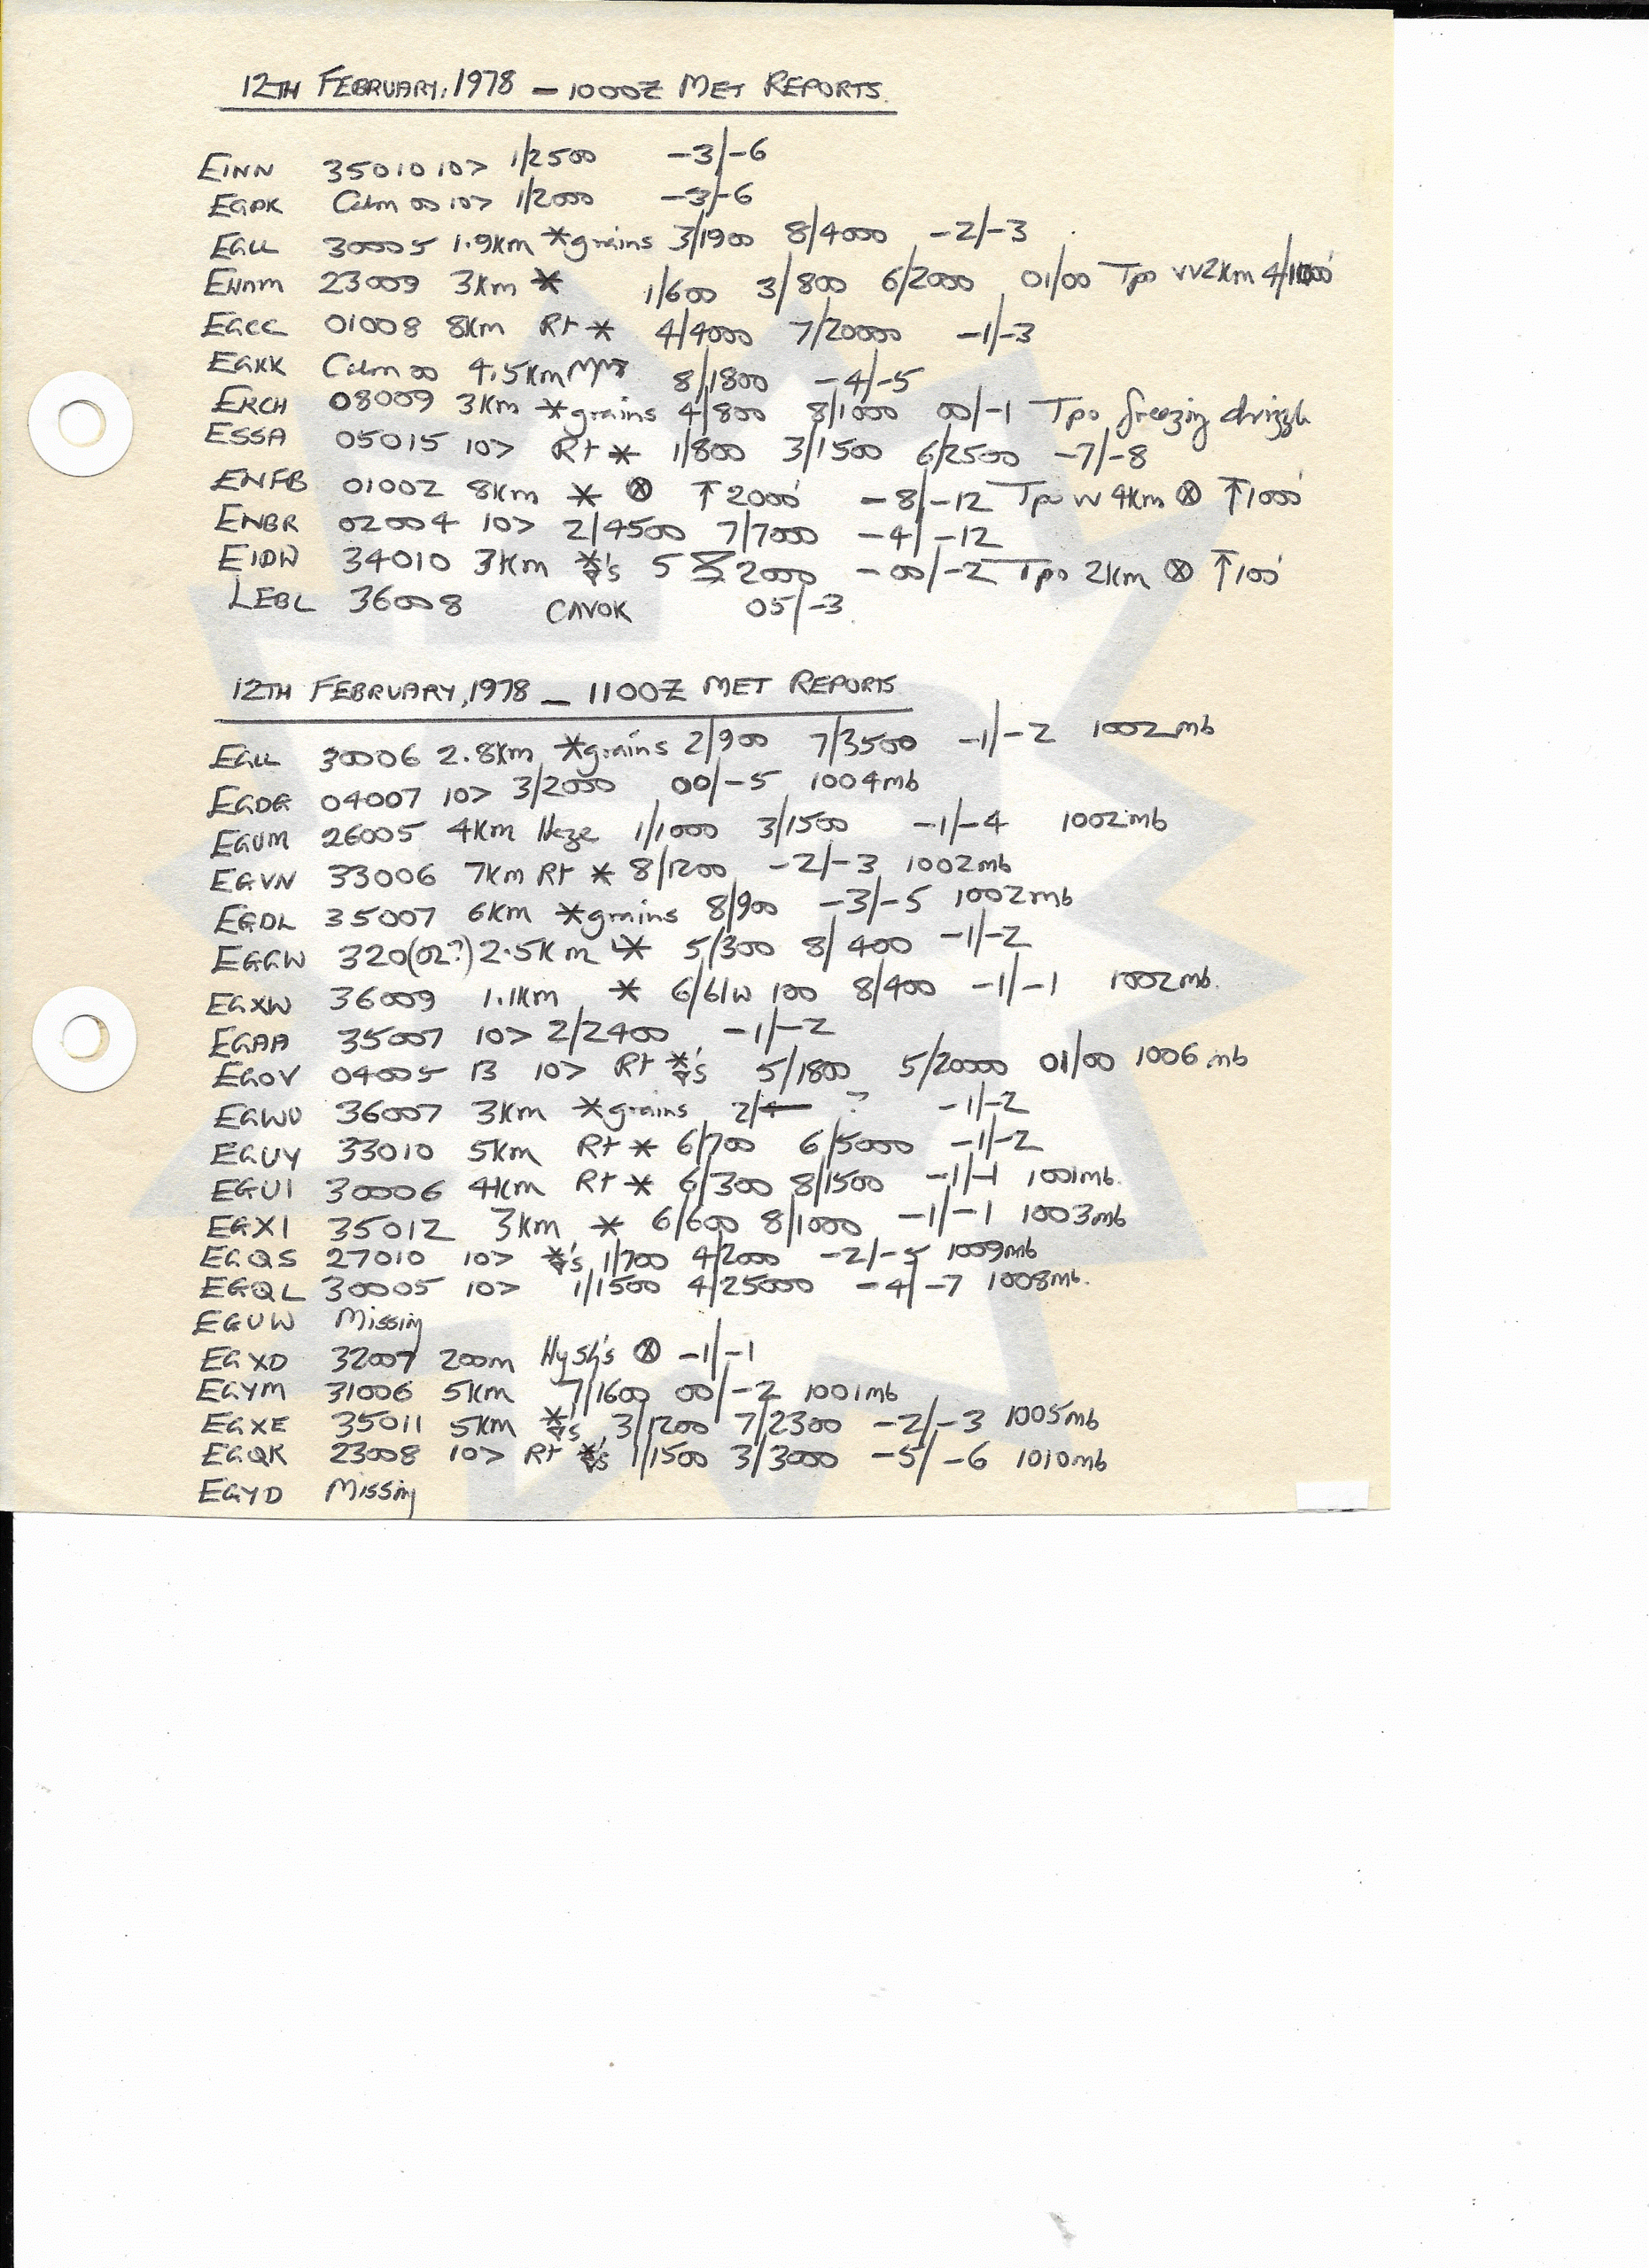 12TH FEBRUARY, 1978 – 1000Z MET REPORTS.
EINN 35010 10> 1/2500 -3/-6
EGPK Calm 00 10> 1/2000 -3/-6
EGLL 30005 1.9km *grains 3/1900 8/4000 -2/-3
EHAM 23009 3km * 1/600 3/800 6/2000 01/00 Tpo vv2km 4/1000'
EGCC 01008 8km Rt * 4/4000 7/20000 -1/-3
EGKK Calm 00 4.5km 8/1800 -4/-5
EKCH 08009 3km *grains 4/800 8/1000 00/-1 Tpo freezing drizzle
ESSA 05015 10> Rt * 1/800 3/1500 6/2500 -7/-8
ENFB 01002 8km * ⊗ ↑2000' -8/-12 Tpo vv 4km ⊗ ↑1000'
ENBR 02004 10> 2/4500 7/7000 -4/-12
EIDW 34010 3km *'s 5 2000 -00/-2 Tpo 2km ⊗ ↑100'
LEBL 36008 CAVOK 05/-3.
12TH FEBRUARY, 1978 – 1100Z MET REPORTS
EGLL 30006 2.8km *grains 2/900 7/3500 -1/-2 1002mb
EGDG 04007 10> 3/2000 00/-5 1004mb
EGUM 26005 4km Haze 1/1000 3/1500 -1/-4 1002mb
EGVN 33006 7km Rt * 8/1200 -2/-3 1002mb
EGDL 35007 6km *grains 8/900 -3/-5 1002mb
EGGW 320(02?) 2.5km * 5/300 8/400 -1/-2
EGXW 36009 1.1km * 6/blw 100 8/400 -1/-1 1002mb.
EGAA 35007 10> 2/2400 -1/-2
EGOV 04005 B 10> Rt *'s 5/1800 5/20000 01/00 1006mb
EGWU 36007 3km *grains 2/ ? -1/-2
EGUY 33010 5km Rt * 6/700 6/5000 -1/-2
EGUI 30006 4km Rt * 6/300 8/1500 -1/-1 1001mb.
EGXI 35012 3km * 6/600 8/1000 -1/-1 1003mb
EGQS 27010 10> *'s 1/700 4/2000 -2/-5 1009mb
EGQL 30005 10> 1/1500 4/25000 -4/-7 1008mb.
EGUW Missing
EGXD 32007 200m Hysh's ⊗ -1/-1
EGYM 31006 5km 7/1600 00/-2 1001mb
EGXE 35011 5km *'s 3/1200 7/2300 -2/-3 1005mb
EGQK 23008 10> Rt *'s 1/1500 3/3000 -5/-6 1010mb
EGYD Missing